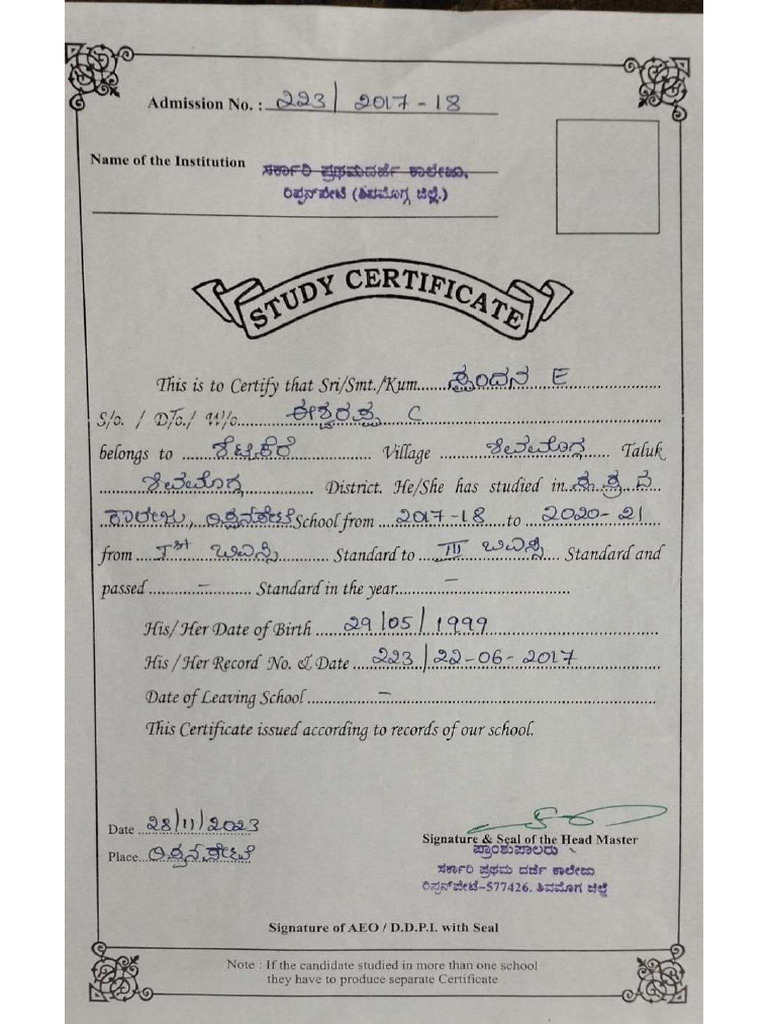 Admission No. : 223 / 2017-18
Name of the Institution ಸರ್ಕಾರಿ ಪ್ರಥಮದರ್ಜೆ ಕಾಲೇಜು,
ರಿಪ್ಪನ್‌ಪೇಟೆ (ಶಿವಮೊಗ್ಗ ಜಿಲ್ಲೆ.)
STUDY CERTIFICATE
This is to Certify that Sri/Smt./Kum...... ಸ್ಪಂದನ E
S/o. / D/o./ W/o. ಈಶ್ವರಪ್ಪ C
belongs to ಶೆಟ್ಟಿಕೆರೆ Village ಶಿವಮೊಗ್ಗ Taluk
ಶಿವಮೊಗ್ಗ District. He/She has studied in ಸ ಪ್ರ ದ
ಕಾಲೇಜು, ರಿಪ್ಪನ್‌ಪೇಟೆ School from 2017-18 to 2020-21
from Ist ಬಿಎಸ್ಸಿ Standard to III ಬಿಎಸ್ಸಿ Standard and
passed - Standard in the year -
His/Her Date of Birth 29/05/1999
His /Her Record No. & Date 223/22-06-2017
Date of Leaving School -
This Certificate issued according to records of our school.
Date 28/11/2023
Signature & Seal of the Head Master
Place ರಿಪ್ಪನ್‌ಪೇಟೆ
ಪ್ರಾಂಶುಪಾಲರು
ಸರ್ಕಾರಿ ಪ್ರಥಮ ದರ್ಜೆ ಕಾಲೇಜು
ರಿಪ್ಪನ್‌ಪೇಟೆ-577426. ಶಿವಮೊಗ ಜಿಲ್ಲೆ
Signature of AEO / D.D.P.I. with Seal
Note : If the candidate studied in more than one school
they have to produce separate Certificate